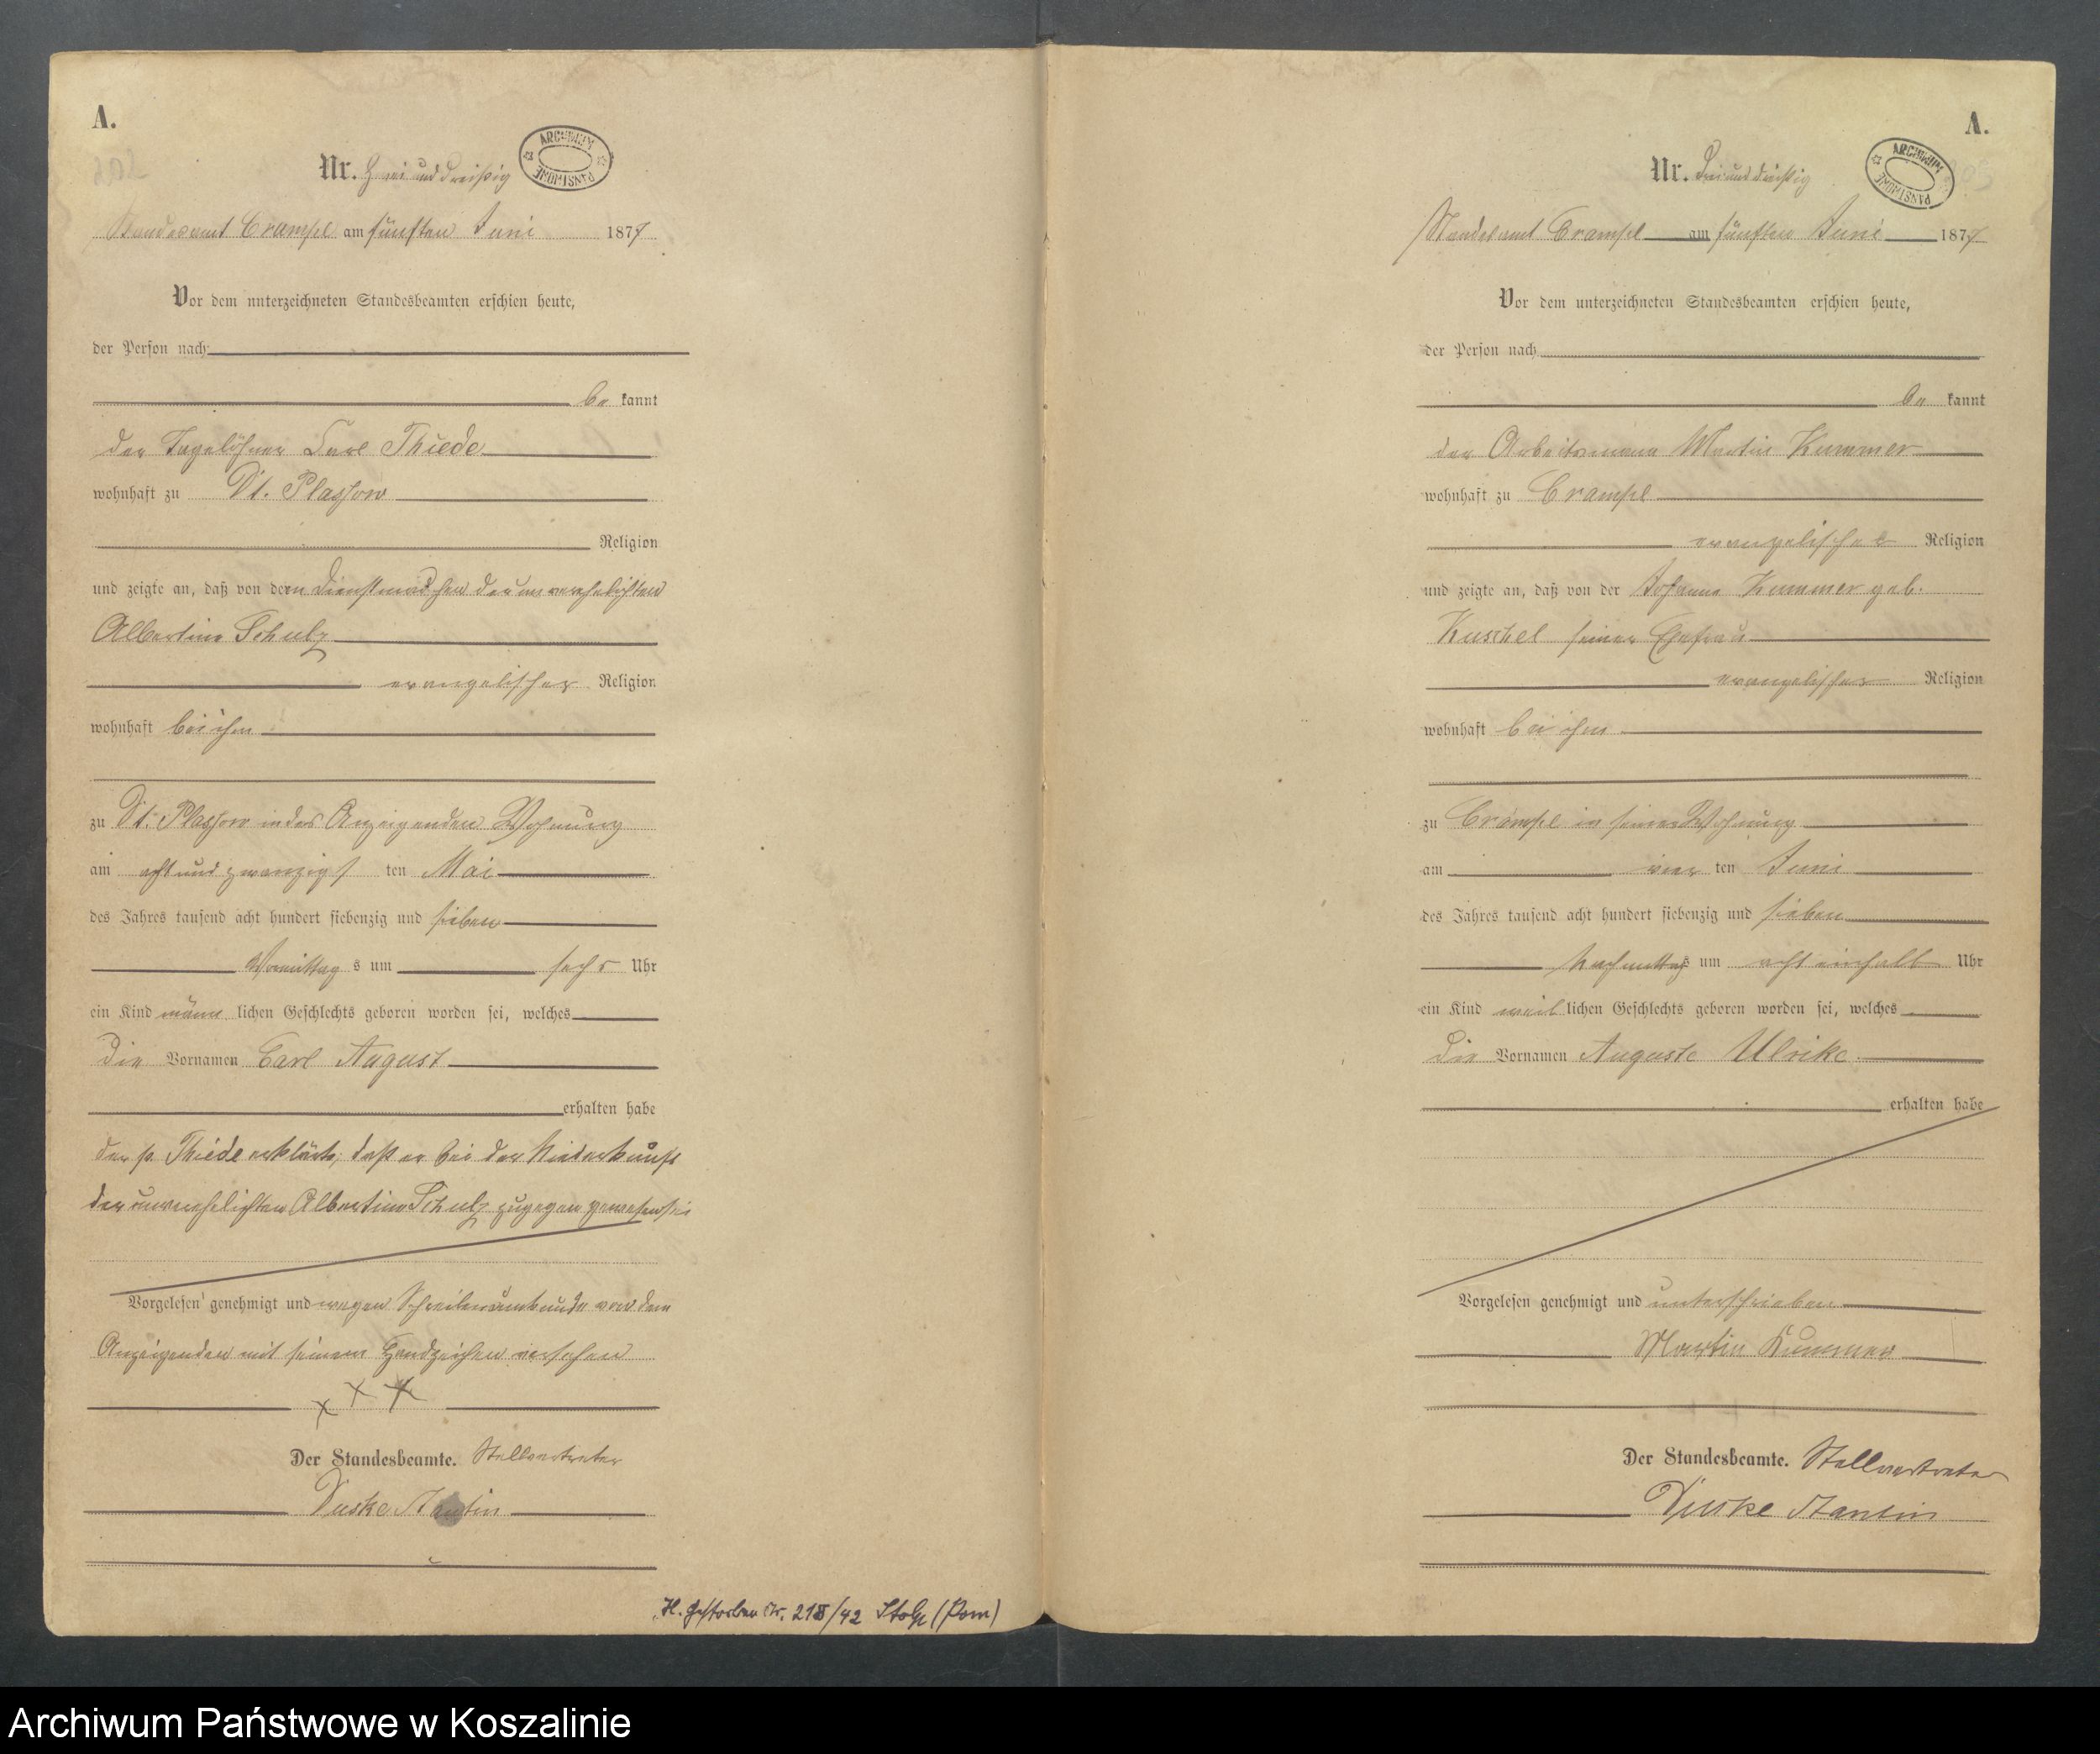 A.
Nr. Zwei und dreißig
ARCHIWUM PAŃSTWOWE
Standesamt Crampe am fünften Juni 1877
Vor dem unterzeichneten Standesbeamten erschien heute,
der Person nach
be kannt
der Tagelöhner Carl Thiede
wohnhaft zu Dt. Plassow
Religion
und zeigte an, daß von dem Dienstmädchen der unverehelichten
Albertine Schulz
evangelischer Religion
wohnhaft bei ihm
zu Dt. Plassow in des Anzeigenden Wohnung
am acht und zwanzigs ten Mai
des Jahres tausend acht hundert siebenzig und sieben
Vormittag s um sechs Uhr
ein Kind männ lichen Geschlechts geboren worden sei, welches
die Vornamen Carl August
erhalten habe
der p. Thiede erklärte, daß er bei der Niederkunft
der unverehelichten Albertine Schulz zugegen gewesen sei
Vorgelesen genehmigt und wegen Schreibensunkunde von dem
Anzeigenden mit seinem Handzeichen versehen
x x x
Der Standesbeamte. Stellvertreter
H. Gestorben Nr. /42 Stolp (Pom)
A.
Nr. Drei und dreißig
ARCHIWUM PAŃSTWOWE
Standesamt Crampe am fünften Juni 1877
Vor dem unterzeichneten Standesbeamten erschien heute,
der Person nach
be kannt
der Arbeitsmann Martin Kummer
wohnhaft zu Crampe
evangelischer Religion
und zeigte an, daß von der Johanne Kummer geb.
Kuschel seiner Ehefrau
evangelischer Religion
wohnhaft bei ihm
zu Crampe in seiner Wohnung
am vier ten Juni
des Jahres tausend acht hundert siebenzig und sieben
Nachmittag s um acht einhalb Uhr
ein Kind weib lichen Geschlechts geboren worden sei, welches
die Vornamen Auguste Ulrike
erhalten habe
Vorgelesen genehmigt und unterschrieben
Martin Kummer
Der Standesbeamte. Stellvertreter
Archiwum Państwowe w Koszalinie